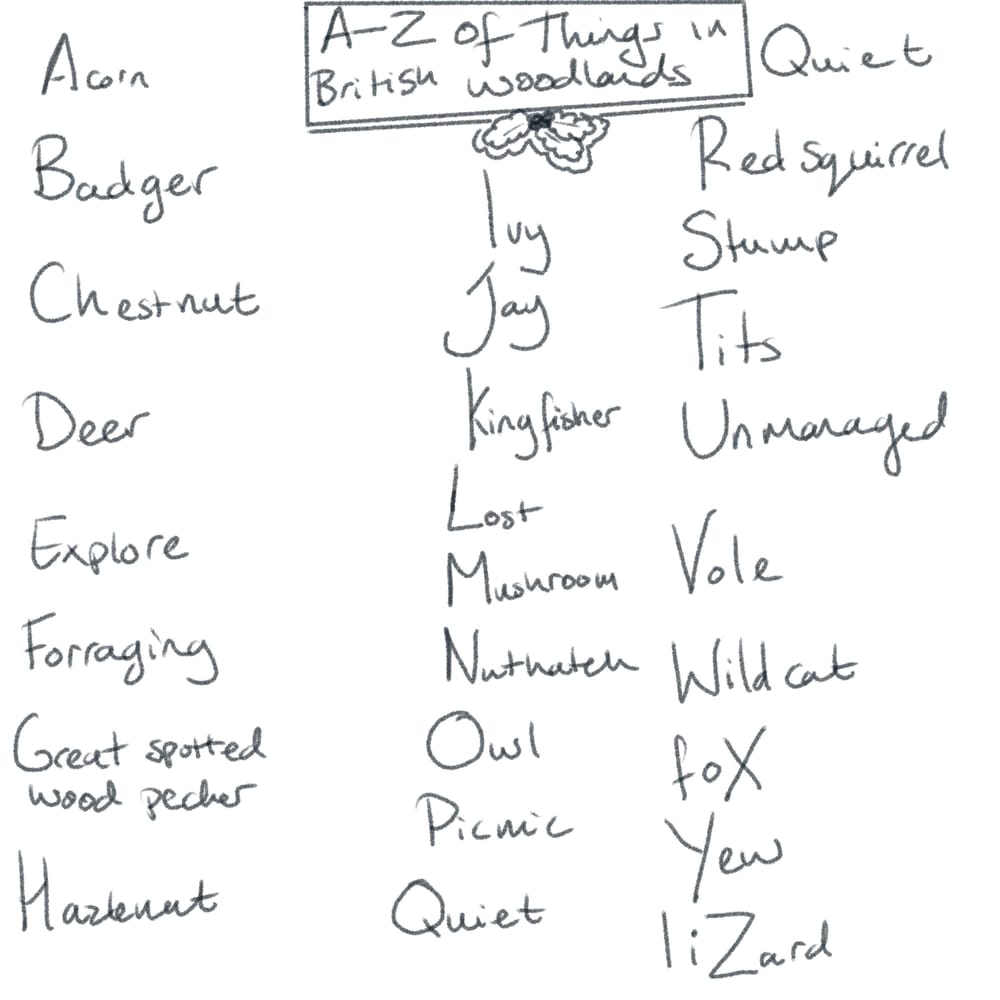 A-Z of Things in
British woodlands
Acorn
Badger
Chestnut
Deer
Explore
Forraging
Great spotted
wood pecker
Hazlenut
Ivy
Jay
Kingfisher
Lost
Mushroom
Nuthatch
Owl
Picnic
Quiet
Quiet
Red squirrel
Stump
Tits
Unmanaged
Vole
Wild cat
foX
Yew
liZard